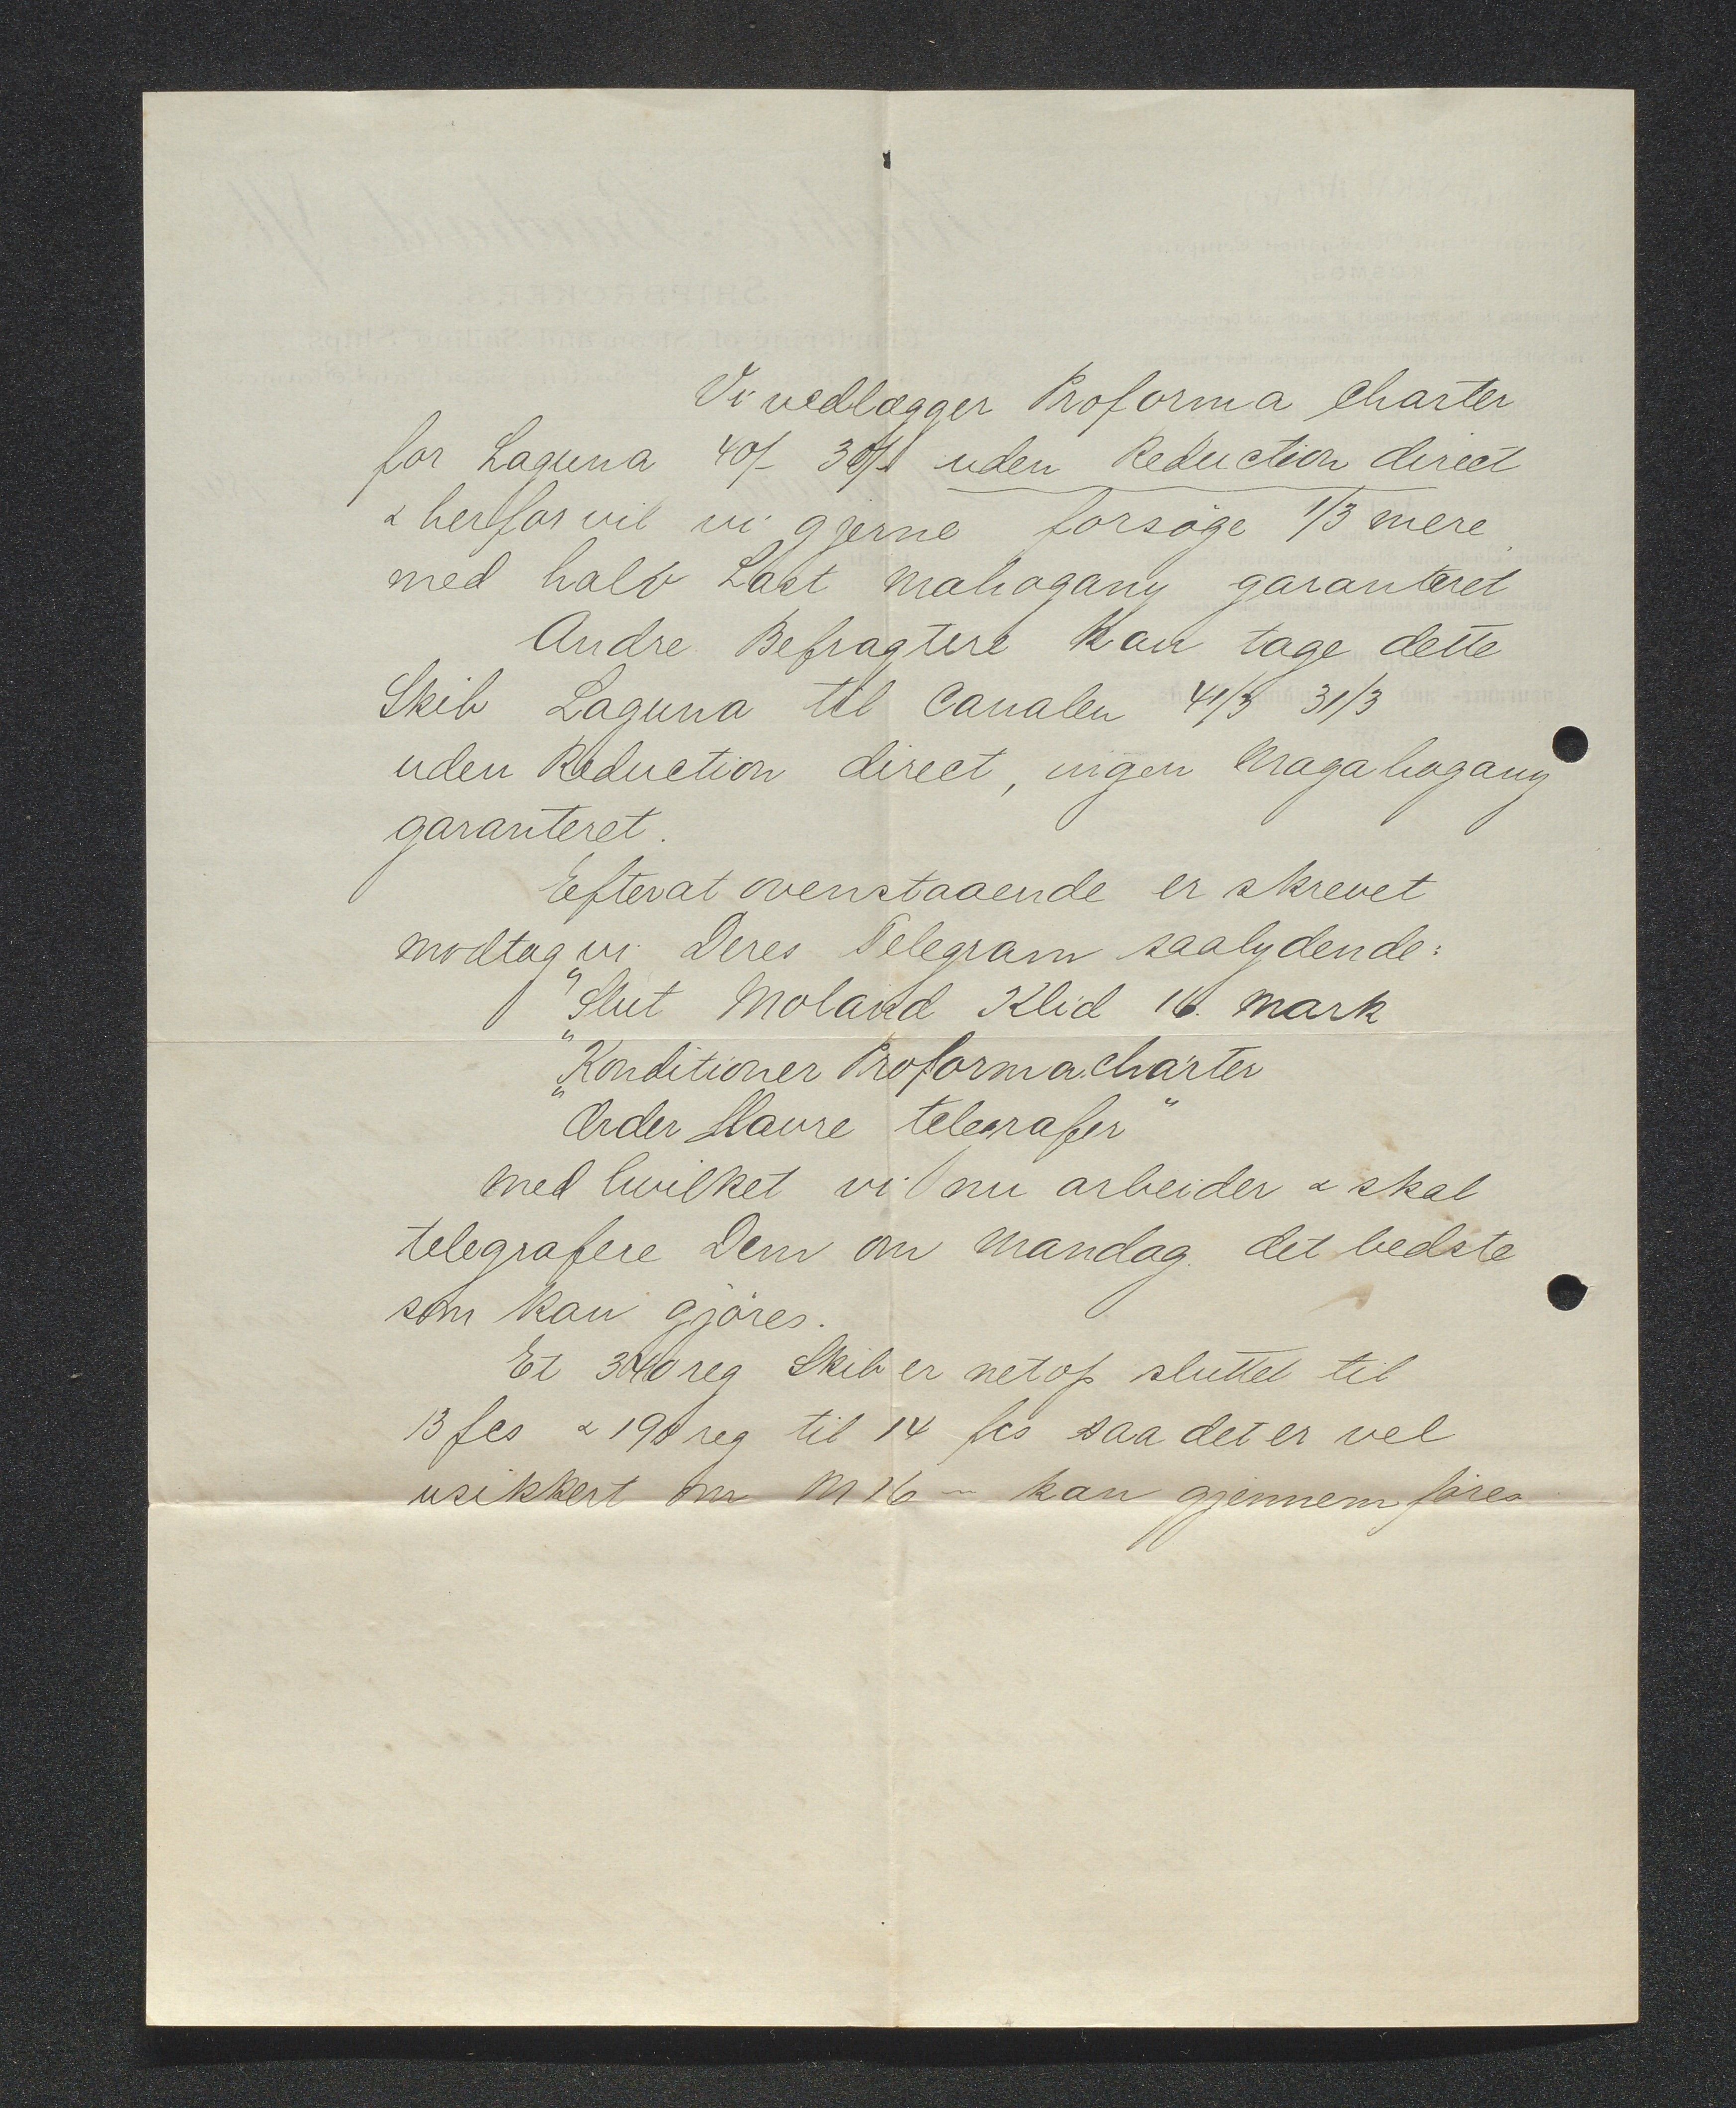 Vi vedlægger Proforma Charter
for Laguna 40/- 30/- uden Reduction direct
& herfor vil vi gjerne forsöge 1/3 mere
med halv Last Mahogany garanteret
Andre Befragtere kan tage dette
Skib Laguna til Canalen 41/3 31/3
uden Reduction direct, ingen Magahogany
garanteret.
Efterat ovenstaaende er skrevet
modtog vi Deres Telegram saalydende:
"Slut Moland Klid 16. Mark
"Konditioner Proforma charter
"Order Havre telegrafer"
med hvilket vi nu arbeider & skal
telegrafere Dem om Mandag det bedste
som kan gjöres.
Et 340 reg Skib er netop sluttet til
13 fcs & 190 reg til 14 fcs saa det er vel
usikkert om M 16 - kan gjennemföres